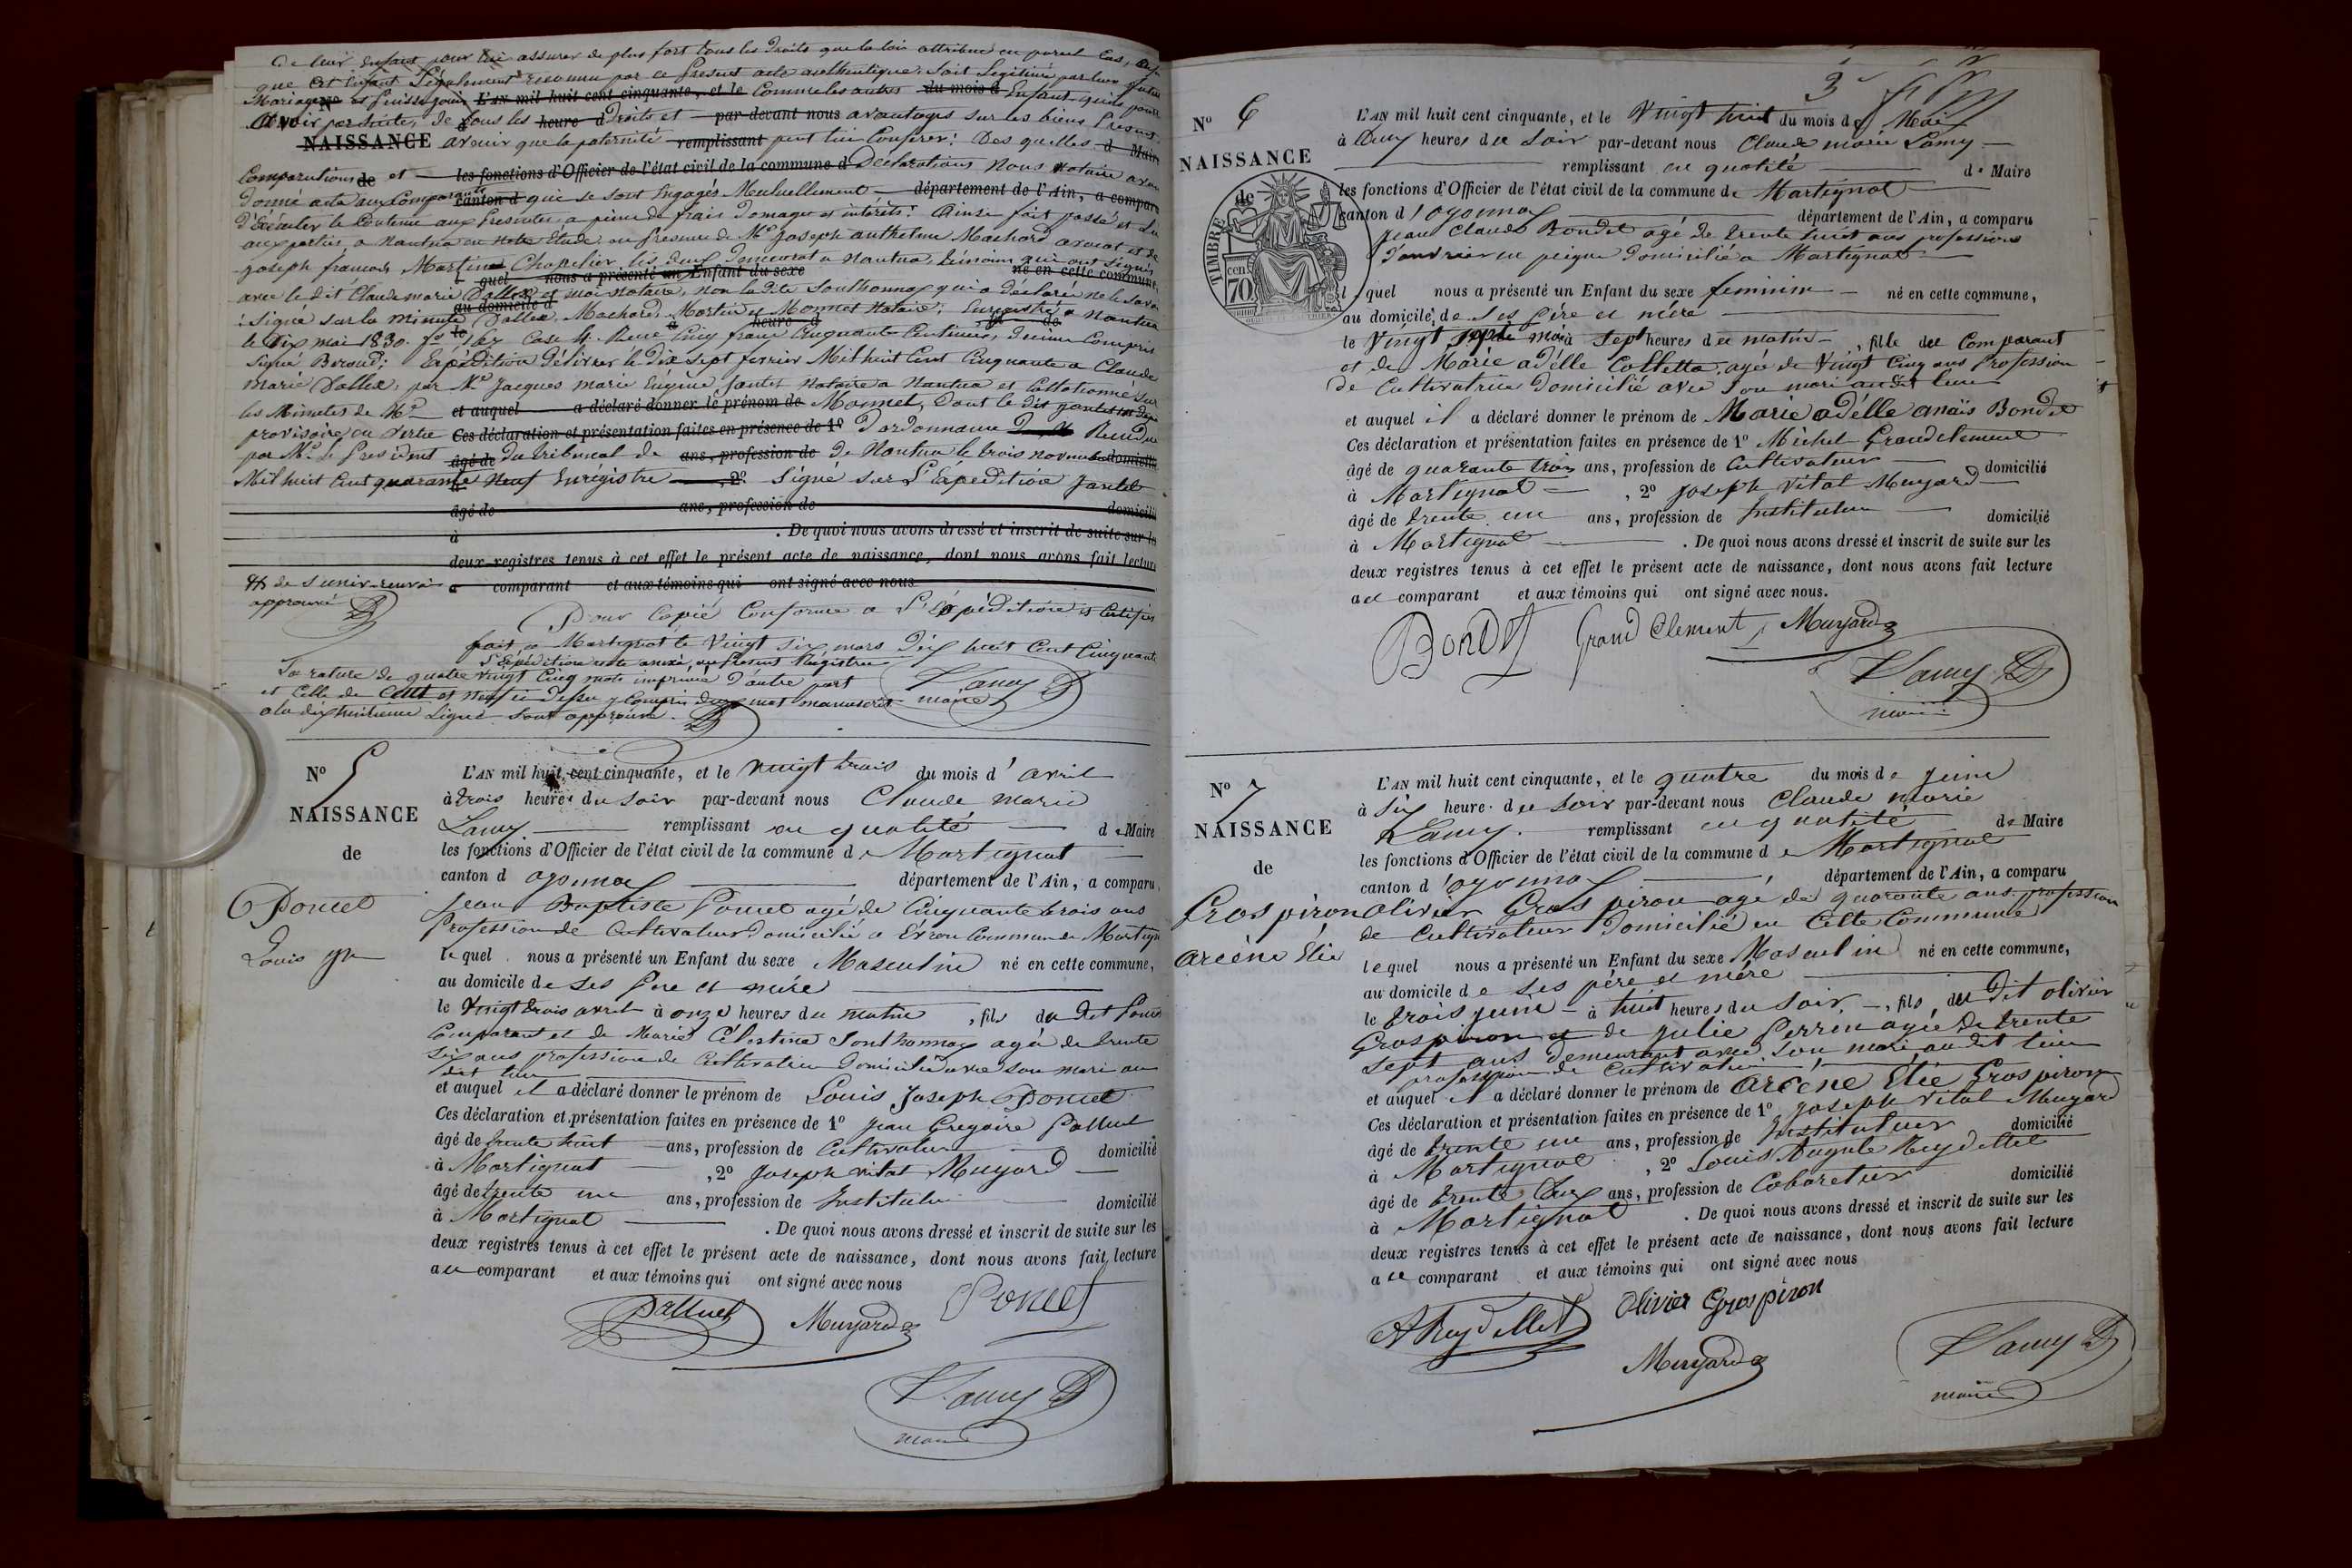 De leur Enfant pour lui assurer de plus fort tous les droits que la loi attribue en pareil Cas,
que cet Enfant Légalement reconnu par ce présent acte authentique, soit Légitimé par leur futur
Mariage et puisse jouir L'AN mil huit cent cinquante, et le Comme les autres du mois d Enfants qu'ils pourront
avoir par suite, de tous les heure d droits et par-devant nous avantages sur les biens présents
NAISSANCE avenir que la paternité remplissant peut lui Conferer: Des quelles d Maire
Comparutions de et les fonctions d'Officier de l'état civil de la commune d Déclarations Nous notaire avons
donné acte aux Comparants canton d qui se sont Engagés Mutuellement département de l'Ain, a comparu
D'Exécuter le Contenu aux présentes a peine de frais domages et intérêts: Ainsi fait passé et lu
aux parties, a Nantua en Etude en présence de Me Joseph anthelme Machard avocat et de
joseph francois Martin Chapelier les deux demeurant a Nantua témoins qui ont signés
quel nous a présenté un Enfant du sexe né en cette commune,
avec le dit Claude marie Dallex et moi notaire, non la dite Sonthonnax qui a déclaré ne le savoir
au domicile d
: Signé sur la minute Dallex, Machard, Martin et Monnet Notaire: Enregistré a Nantua
le dix mai 1830. fo 162 Case 4. Reçu Cinq francs Cinquante Centimes, Dixime Compris
signé Beroud: Expédition délivrée le Dix Sept fevrier Mil huit Cent Cinquante a Claude
Marie Dallex, par Me Jacques marie Eugène Jantet Notaire a Nantua et Collationné sur
les Minutes de Me et auquel a déclaré donner le prénom de Monnet, Dont le dit Jantet est
provisoire en Vertu Ces déclaration et présentation faites en présence de 1o D'ordonnance Rendue
par Mr le president âgé de du tribunal de ans, profession de de Nantua le trois novembre domicilié
Mil huit Cent quarante Neuf Enrégistre , 2o Signé sur L'Expedition Jantet
âgé de ans, profession de domicilié
à . De quoi nous avons dressé et inscrit de suite sur les
deux registres tenus à cet effet le présent acte de naissance, dont nous avons fait lecture
a comparant et aux témoins qui ont signé avec nous
renvoi
approuvé
Pour Copie Conforme a L'Expédition Certifiée
fait a Martignat le Vingt six mars Dix huit Cent Cinquante
L'Expédition reste anexé, au present Registre
La rature de quatre vingt Cinq mots imprimé d'autre part
et Celle de Cent et neuf ci dessus y Compris deux mot manuscrit
a la dix huitieme Ligne sont approuvé.
C. Lamy
maire
No 5
NAISSANCE
de
Poncet
Louis Jph
L'AN mil huit cent cinquante, et le vingt trois du mois d'avril
à trois heures du soir par-devant nous Claude marie
Lamy remplissant en qualité de Maire
les fonctions d'Officier de l'état civil de la commune de Martignat
canton d oyonnax département de l'Ain, a comparu
Jean Baptiste Poncet agé de Cinquante trois ans
Profession de Cultivateur domicilié a Evron Commune de Martignat
le quel nous a présenté un Enfant du sexe Masculin né en cette commune,
au domicile de ses Père et mère
le Vingt trois avril à onze heures du matin , fils du dit Poncet
Comparant et de Marie Célestine Sonthonnax agée de trente
Six ans profession de Cultivatrice Domicilié avec son mari au
dit lieu
et auquel il a déclaré donner le prénom de Louis Joseph Poncet
Ces déclaration et présentation faites en présence de 1o Jean Gregoire Palluet
âgé de trente huit ans, profession de Cultivateur domicilié
à Martignat , 2o Joseph vital Muyard
âgé de trente un ans, profession de Instituteur domicilié
à Martignat . De quoi nous avons dressé et inscrit de suite sur les
deux registres tenus à cet effet le présent acte de naissance, dont nous avons fait lecture
au comparant et aux témoins qui ont signé avec nous
Palluet Muyard Poncet
C. Lamy
maire
3
No 6
NAISSANCE
de
TIMBRE
cen
70
L'AN mil huit cent cinquante, et le Vingt huit du mois de Mai
à Deux heures du Soir par-devant nous Claude marie Lamy
remplissant en qualité de Maire
les fonctions d'Officier de l'état civil de la commune de Martignat
canton d'oyonnax département de l'Ain, a comparu
Jean Claude Bondet agé de trente huit ans profession
d'ouvrier en peigne domicilié a Martignat
le quel nous a présenté un Enfant du sexe feminin né en cette commune,
au domicile de Ses Père et mère
le Vingt Sept mai à Sept heures du matin , fille du Comparant
et de Marie adélle Colletta agé de Vingt Cinq ans Profession
De Cultivatrice Domicilié avec son mari au dit lieu
et auquel il a déclaré donner le prénom de Marie adélle anaïs Bondet
Ces déclaration et présentation faites en présence de 1o Michel Grandclement
âgé de quarante trois ans, profession de Cultivateur domicilié
à Martignat , 2o Joseph Vital Muyard
âgé de trente un ans, profession de Instituteur domicilié
à Martignat . De quoi nous avons dressé et inscrit de suite sur les
deux registres tenus à cet effet le présent acte de naissance, dont nous avons fait lecture
au comparant et aux témoins qui ont signé avec nous.
Bondet Grand Clement Muyard
C. Lamy
maire
No 7
NAISSANCE
de
Grospiron
arcène Elie
L'AN mil huit cent cinquante, et le quatre du mois de Juin
à Six heure du soir par-devant nous Claude marie
Lamy remplissant en qualité de Maire
les fonctions d'Officier de l'état civil de la commune de Martignat
canton d'oyonnax département de l'Ain, a comparu
olivier Gros piron agé de quarante ans profession
de Cultivateur Domicilié en Cette Commune
lequel nous a présenté un Enfant du sexe Masculin né en cette commune,
au domicile de ses père et mère
le trois juin à huit heures du soir , fils du Dit olivier
Grospiron et de julie Perrin agée de trente
sept ans demeurant avec son mari au dit lieu
profession de Cultivatrice
et auquel il a déclaré donner le prénom de arcène Elie Grospiron
Ces déclaration et présentation faites en présence de 1o Joseph vital Muyard
âgé de trente un ans, profession de Instituteur domicilié
à Martignat , 2o Louis Auguste Reydellet
âgé de trente deux ans, profession de Cabaretier domicilié
à Martignat . De quoi nous avons dressé et inscrit de suite sur les
deux registres tenus à cet effet le présent acte de naissance, dont nous avons fait lecture
au comparant et aux témoins qui ont signé avec nous
A Reydellet Olivier Grospiron
Muyard
C. Lamy
maire